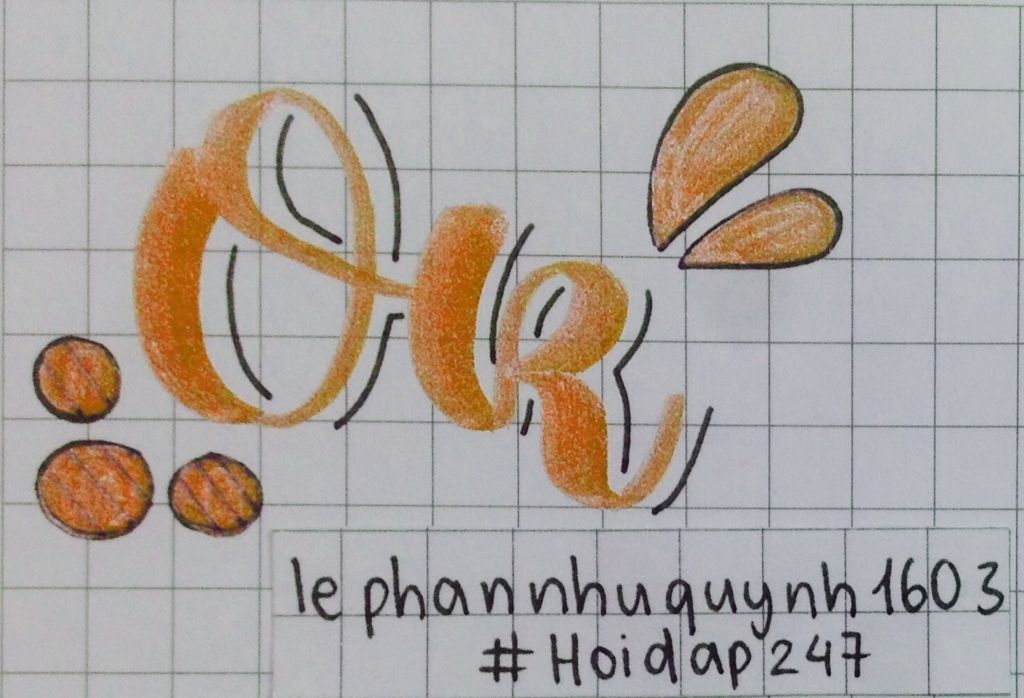 Ok
lephannhuquynh1603
#Hoidap247